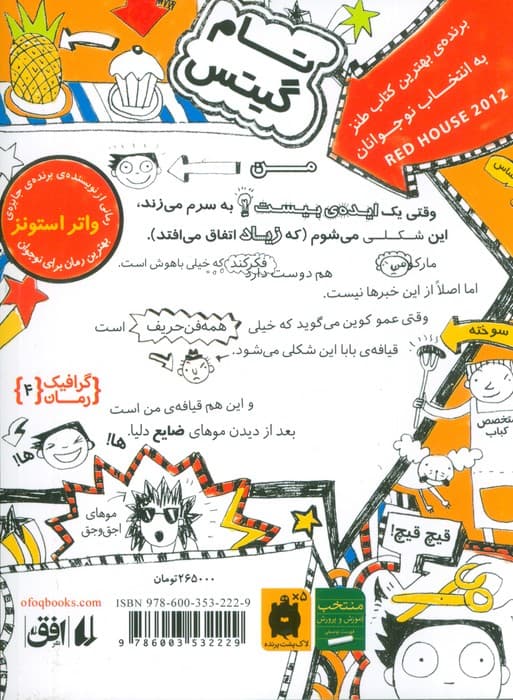 تام
گیتس
برنده‌ی بهترین کتاب طنز
به انتخاب نوجوانان
RED HOUSE 2012
من
رمانی از نویسنده‌ی برنده‌ی جایزه‌ی
واتر استونز
بهترین رمان برای نوجوان
وقتی یک ایده‌ی بیست به سرم می‌زند،
این شکلی می‌شوم (که زیاد اتفاق می‌افتد).
مارکوس هم دوست دارد فکر کند که خیلی باهوش است.
اما اصلاً از این خبرها نیست.
وقتی عمو کوین می‌گوید که خیلی همه‌فن‌حریف است
قیافه‌ی بابا این شکلی می‌شود.
سوخته
متخصص
کباب
گرافیک
رمان
{۴}
و این هم قیافه‌ی من است
بعد از دیدن موهای ضایع دلیا.
ها!
ها!
موهای
اجق‌وجق
قیچ قیچ!
۲۶۵۰۰۰ تومان
ofoqbooks.com
افق
ISBN 978-600-353-222-9
9 786003 532229
×۵
لاک‌پشت پرنده
منتخب
آموزش و پرورش